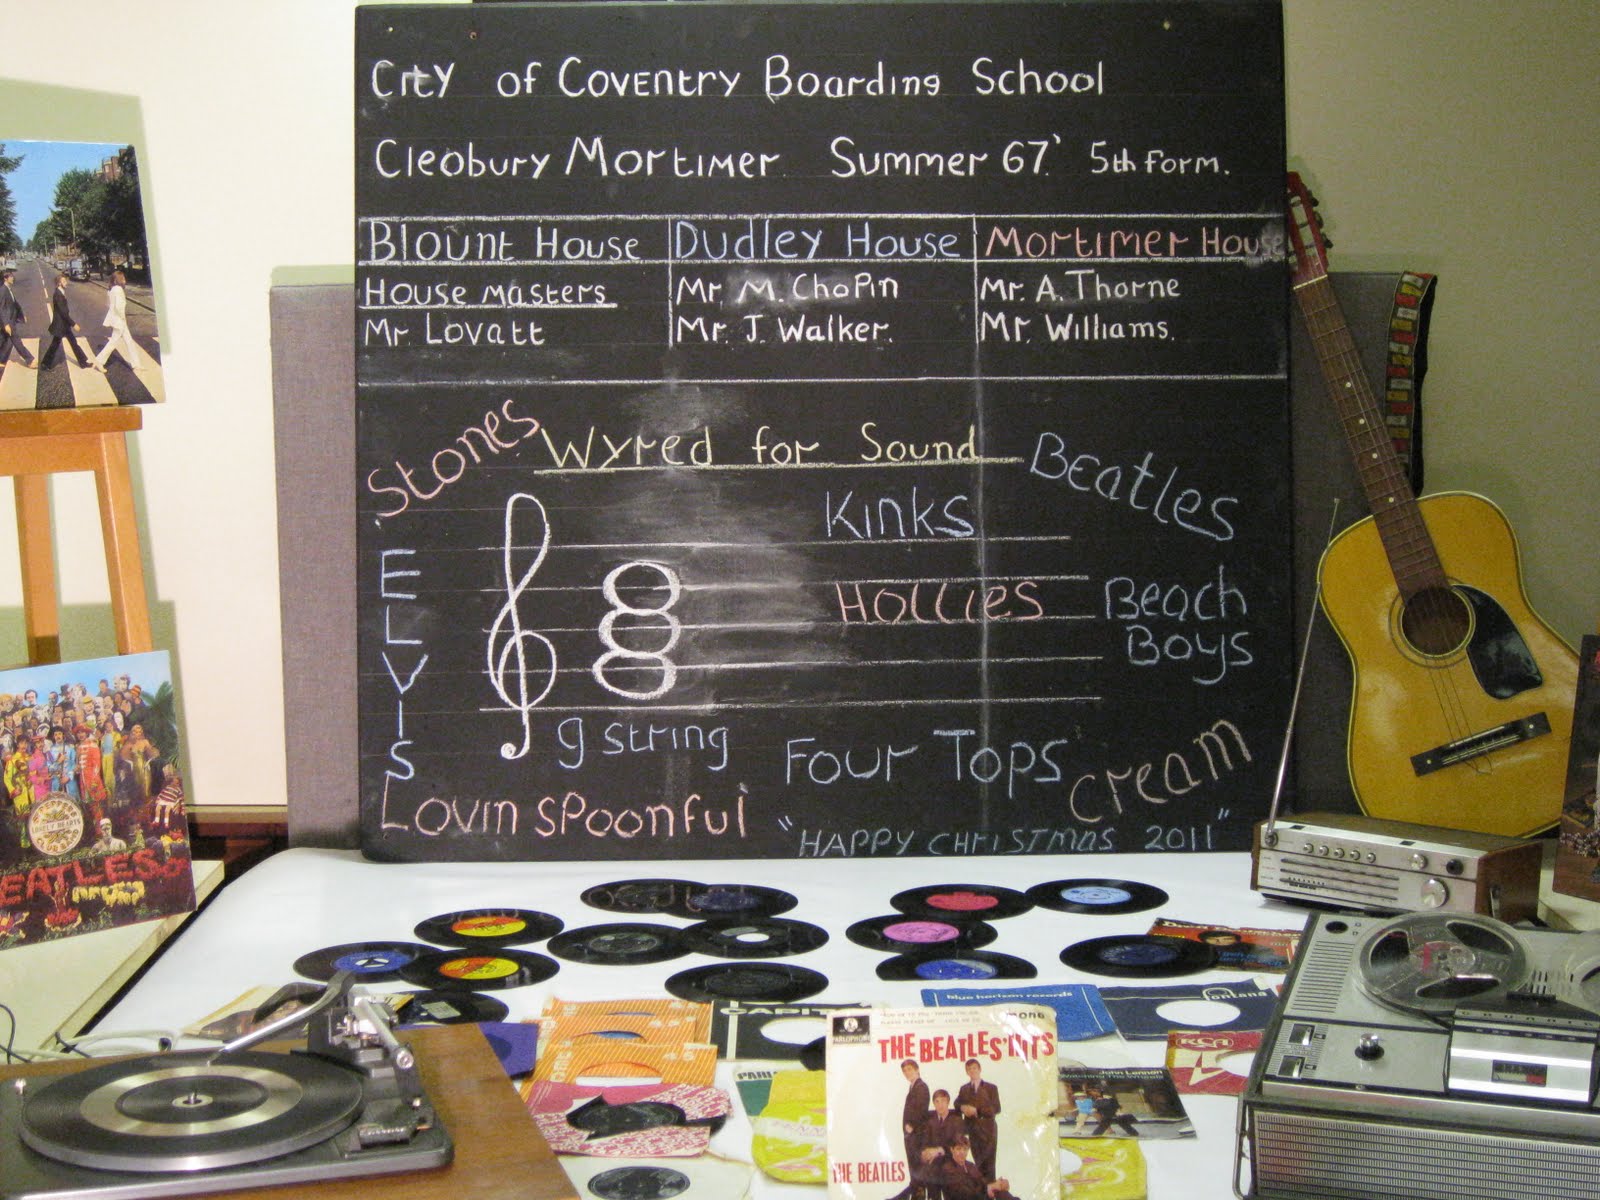 City of Coventry Boarding School
Cleobury Mortimer Summer 67' 5th Form.
Blount House
House Masters
Mr Lovatt
Dudley House
Mr. M. Chopin
Mr. J. Walker.
Mortimer House
Mr. A. Thorne
Mr. Williams.
Stones
Wyred for Sound
Beatles
Kinks
ELVIS
Hollies
Beach
Boys
g string
Four Tops
Cream
Lovin spoonful
"HAPPY CHRISTMAS 2011"
LONELY HEARTS
CLUB
BEATLES
blue horizon records
Fontana
PARLOPHONE
mono
THE BEATLES' HITS
THE BEATLES
RCA
John Lennon